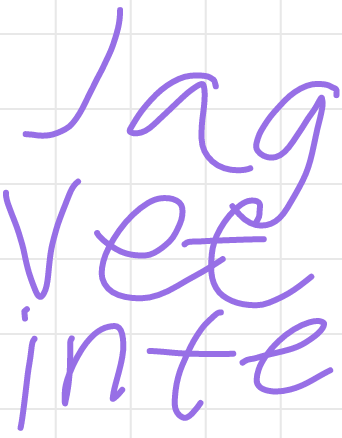 Jag
vet
inte